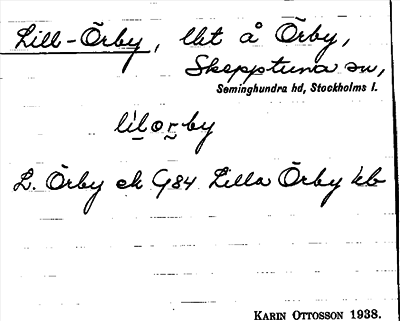 Lill-Örby, lht å Örby,
Skepptuna sn,
Seminghundra hd, Stockholms l.
lìlorby
L. Örby ek G84 Lilla Örby kb
KARIN OTTOSSON 1938.